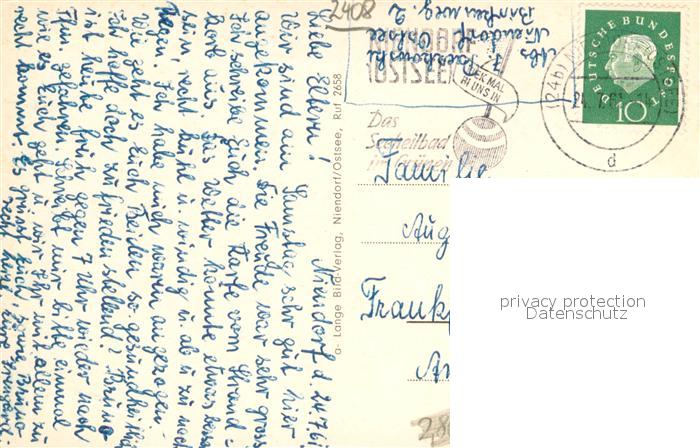 2408
Niendorf d. 24.7.61
Liebe Eltern!
Wir sind am Samstag sehr gut hier
angekommen. Die Freude war sehr gross.
Ich schreibe Euch die Karte vom Strand-
korb aus. Das Wetter könnte etwas besser
sein, kühl u. windig u. ab u. zu nach
Regen, ich habe mich warm angezogen.
Wie geht es Euch Beiden so gesundheitlich
ich hoffe doch zufriedenstellend? Bruno
ist heute früh gegen 7 Uhr wieder nach
gefahren. Schreibt mir bitte einmal
wie es Euch geht u. wir Ihr mit allem zu
recht kommt. Es grüsst Euch, Bruno
recht herzl. Eure
a- Lange Bild-Verlag, Niendorf/Ostsee, Ruf 2658
Abs.
Niendorf Ostsee
Birkenweg 2
NIENDORF
(OSTSEE)
WEEK MAL
BI UNS IN
Das
Seeheilbad
im Grünen
(24b)
24.7.61
d
DEUTSCHE BUNDESPOST
10
Familie
Aug
Frankf
Am
privacy protection
Datenschutz